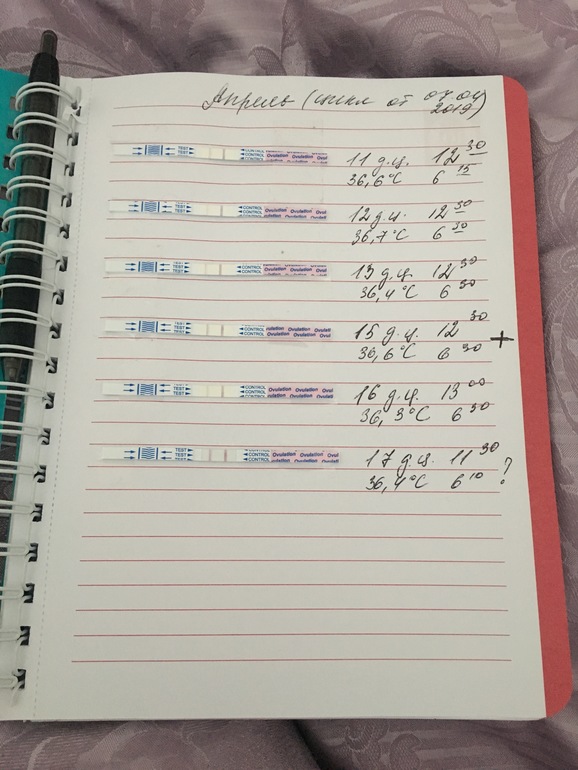 Апрель (цикл от 07.04 2019)
TEST CONTROL Ovulation Ovulation Ovul
TEST CONTROL Ovulation Ovulation
11 д.ц. 12 30
36,6°C 6 15
TEST CONTROL Ovulation Ovulation Ovul
TEST CONTROL Ovulation Ovulation
12 д.ц. 12 30
36,7°C 6 30
TEST CONTROL Ovulation Ovulation Ovul
TEST CONTROL Ovulation Ovulation
13 д.ц. 12 30
36,4°C 6 30
TEST CONTROL Ovulation Ovulation
TEST CONTROL Ovulation Ovulation Ovul
15 д.ц. 12 30 +
36,6°C 6 30
TEST CONTROL Ovulation Ovulation Ovul
TEST CONTROL Ovulation Ovulation
16 д.ц. 13 00
36,3°C 6 30
TEST CONTROL Ovulation Ovulation Ovul
TEST CONTROL Ovulation Ovulation
17 д.ц. 11 30 ?
36,4°C 6 10